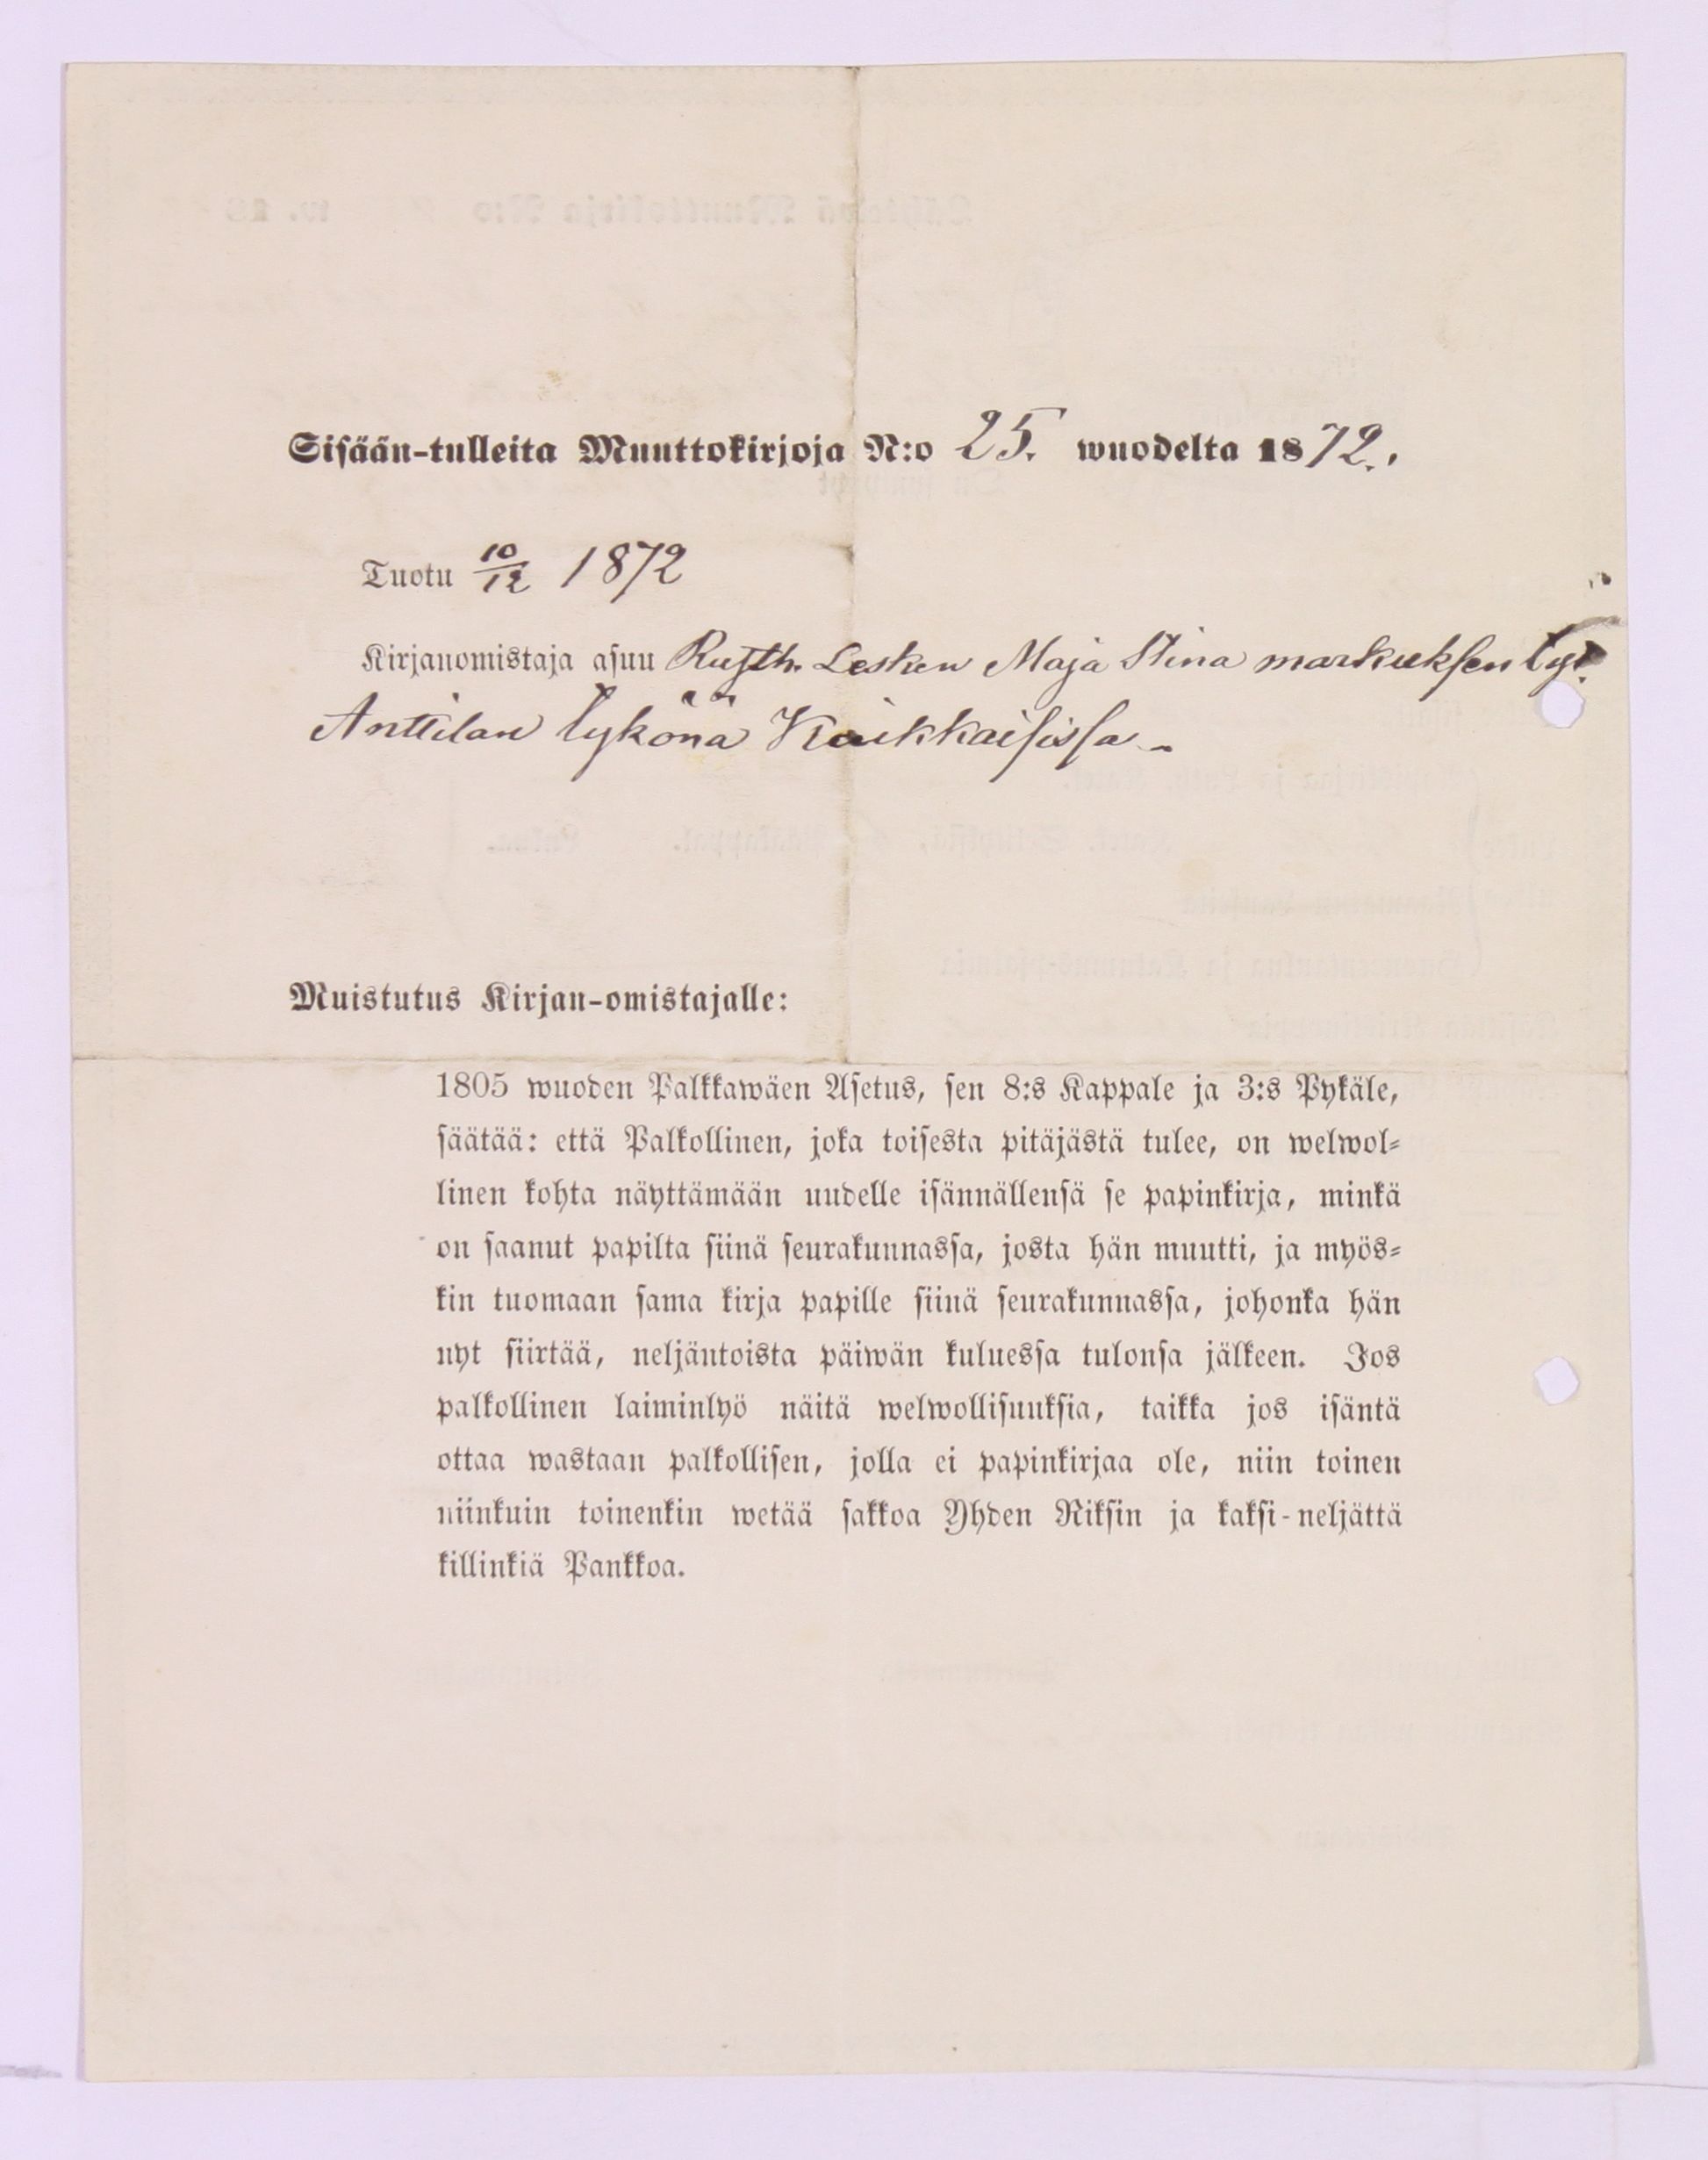 Sisään-tulleita Muuttokirjoja N:o 25. wuodelta 1872.
Tuotu 10/12 1872
Kirjanomistaja asuu Rusth. Lesken Maja Stina markuksen tyt.
Anttilan tykönä Kaukkaisissa
Muistutus Kirjan-omistajalle:
1805 wuoden Palkkawäen Asetus, sen 8:s Kappale ja 3:s Pykäle,
säätää: että Palkollinen, joka toisesta pitäjästä tulee, on welwol-
linen kohta näyttämään uudelle isännällensä se papinkirja, minkä
on saanut papilta siinä seurakunnassa, josta hän muutti, ja myös-
kin tuomaan sama kirja papille siinä seurakunnassa, johonka hän
nyt siirtää, neljäntoista päiwän kuluessa tulonsa jälkeen. Jos
palkollinen laiminlyö näitä welwollisuuksia, taikka jos isäntä
ottaa wastaan palkollisen, jolla ei papinkirjaa ole, niin toinen
niinkuin toinenkin wetää sakkoa Yhden Riksin ja kaksi-neljättä
killinkiä Pankkoa.